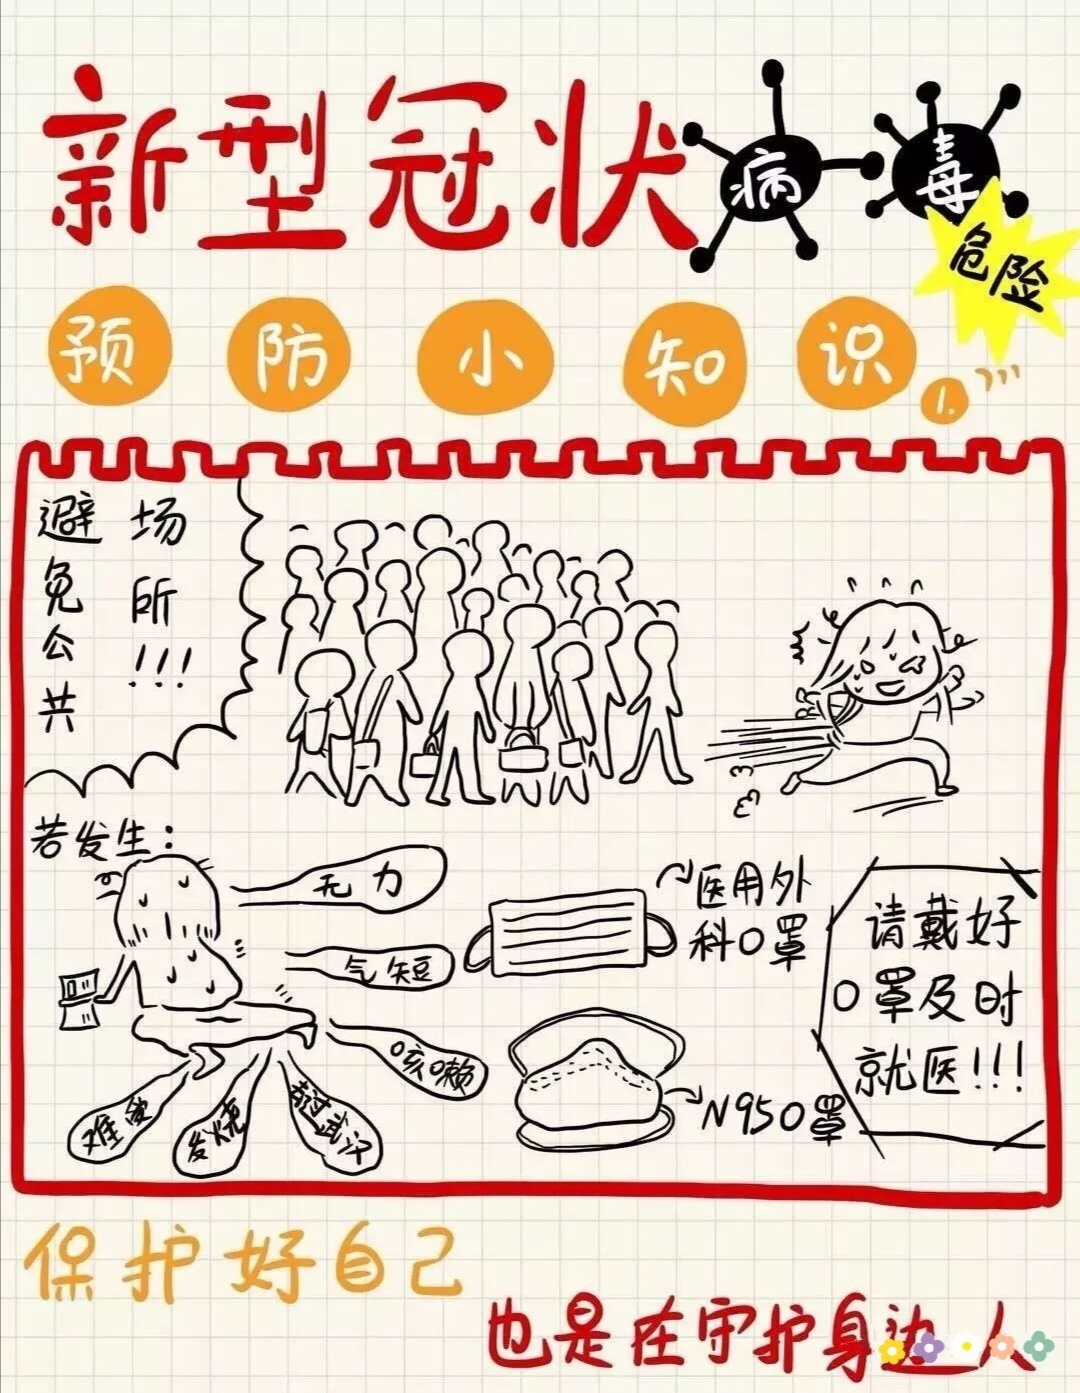 新型冠状病毒
危险
预防小知识
1.
避免公共
场所!!!
若发生：
无力
气短
咳嗽
去过武汉
发烧
难受
医用外
科口罩
N95口罩
请戴好
口罩及时
就医!!!
保护好自己
也是在守护身边人